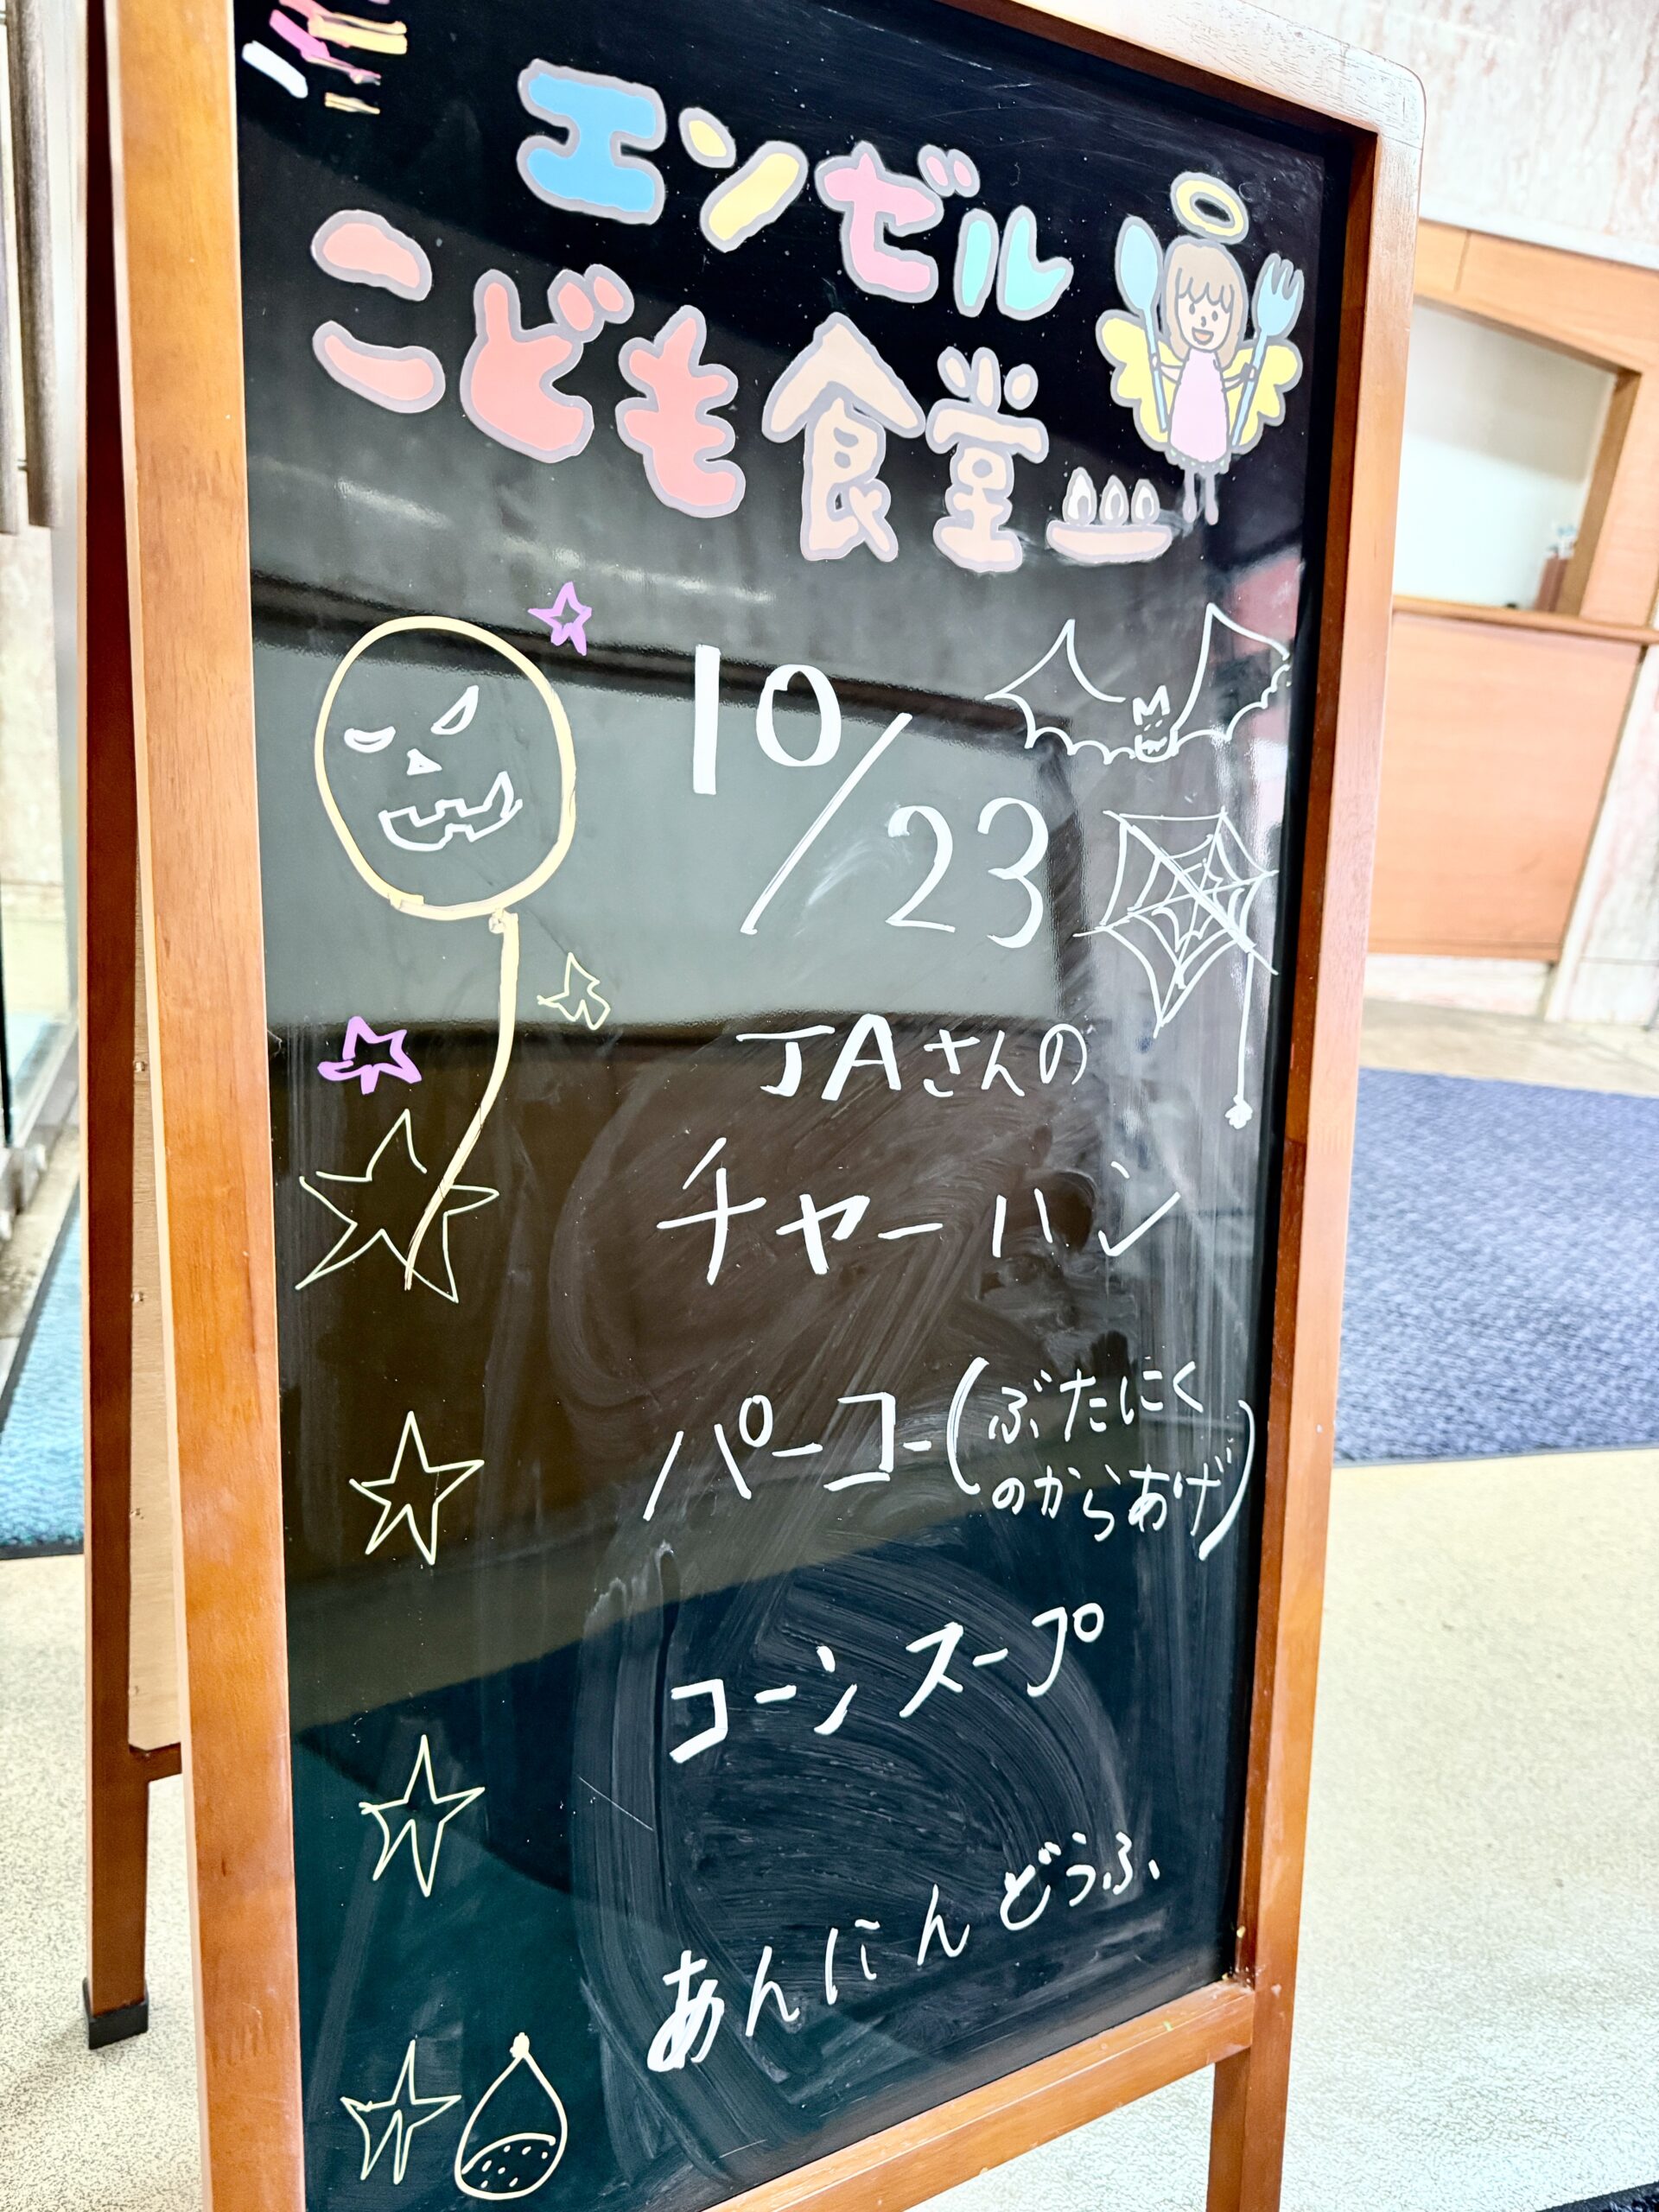 エンゼル
こども食堂
10/23
JAさんの
チャーハン
パーコー(ぶたにく
のからあげ)
コーンスープ
あんにんどうふ